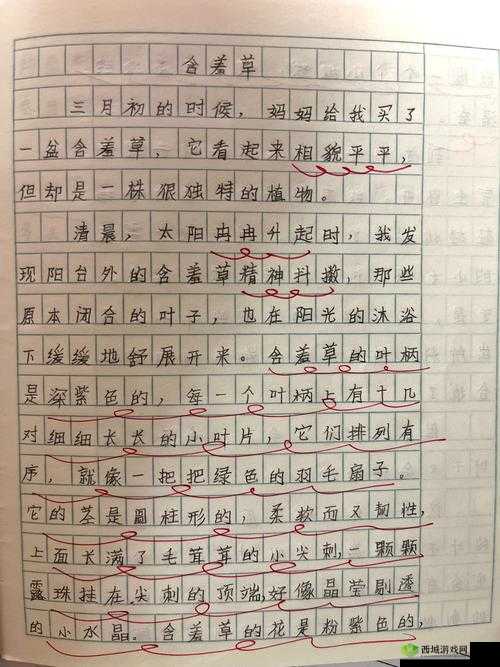 含羞草
三月初的时候，妈妈给我买了
一盆含羞草，它看起来相貌平平，
但却是一株狠独特的植物。
清晨，太阳冉冉升起时，我发
现阳台外的含羞草精神抖擞，那些
原本闭合的叶子，也在阳光的沐浴
下缓缓地舒展开来。含羞草的叶柄
是深紫色的，每一个叶柄占有十几
对细细长长的小叶片，它们排列有
序，就像一把把绿色的羽毛扇子。
它的茎是圆柱形的，柔软而又韧性，
上面长满了毛茸茸的小尖刺，一颗颗
露珠挂在尖刺的顶端，好像晶莹剔透
的小水晶。含羞草的花是粉紫色的，
西城游戏网